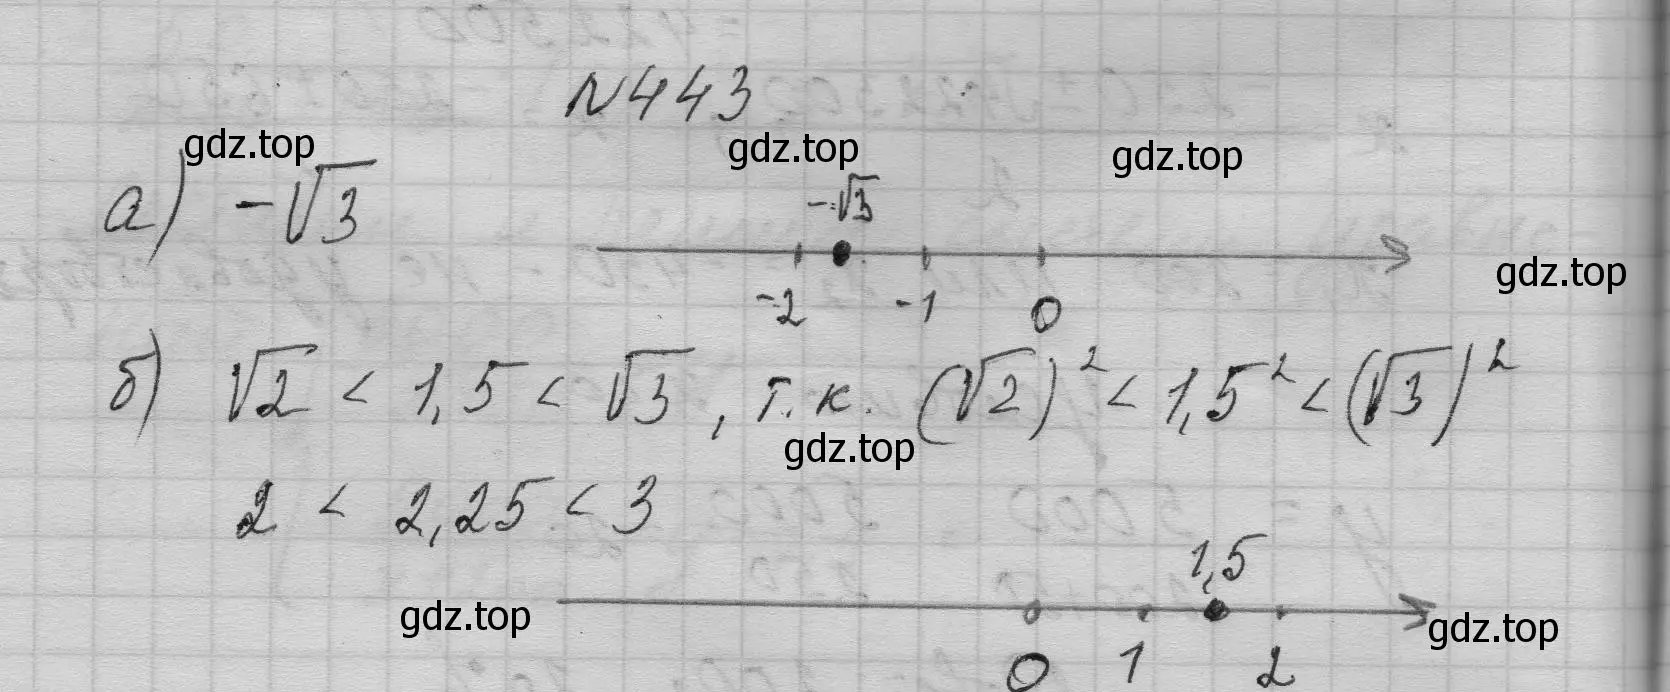 N443
gdz.top
gdz.top
gdz.top
а) -√3
-√3
gdz.top
-2 -1 0
б) √2 < 1,5 < √3, т.к. (√2)² < 1,5² < (√3)²
gdz.top
2 < 2,25 < 3
1,5
gdz.top
gdz.top
0 1 2